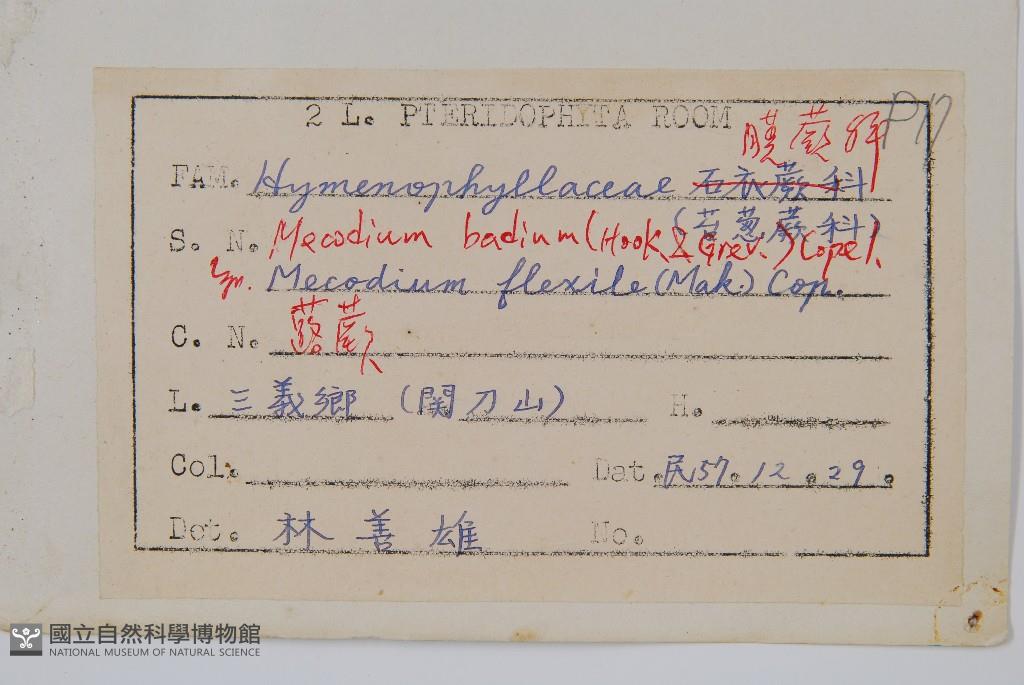 2 L. PTERIDOPHYTA ROOM
P17
膜蕨科
FAM. Hymenophyllaceae 石衣蕨科
(苔葱蕨科)
S. N. Mecodium badium (Hook. & Grev.) Copel.
Syn. Mecodium flexile (Mak.) Cop.
C. N. 蕗蕨
L. 三義鄉 (関刀山) H.
Col. Dat. 民57.12.29.
Det. 林善雄 No.
國立自然科學博物館
NATIONAL MUSEUM OF NATURAL SCIENCE